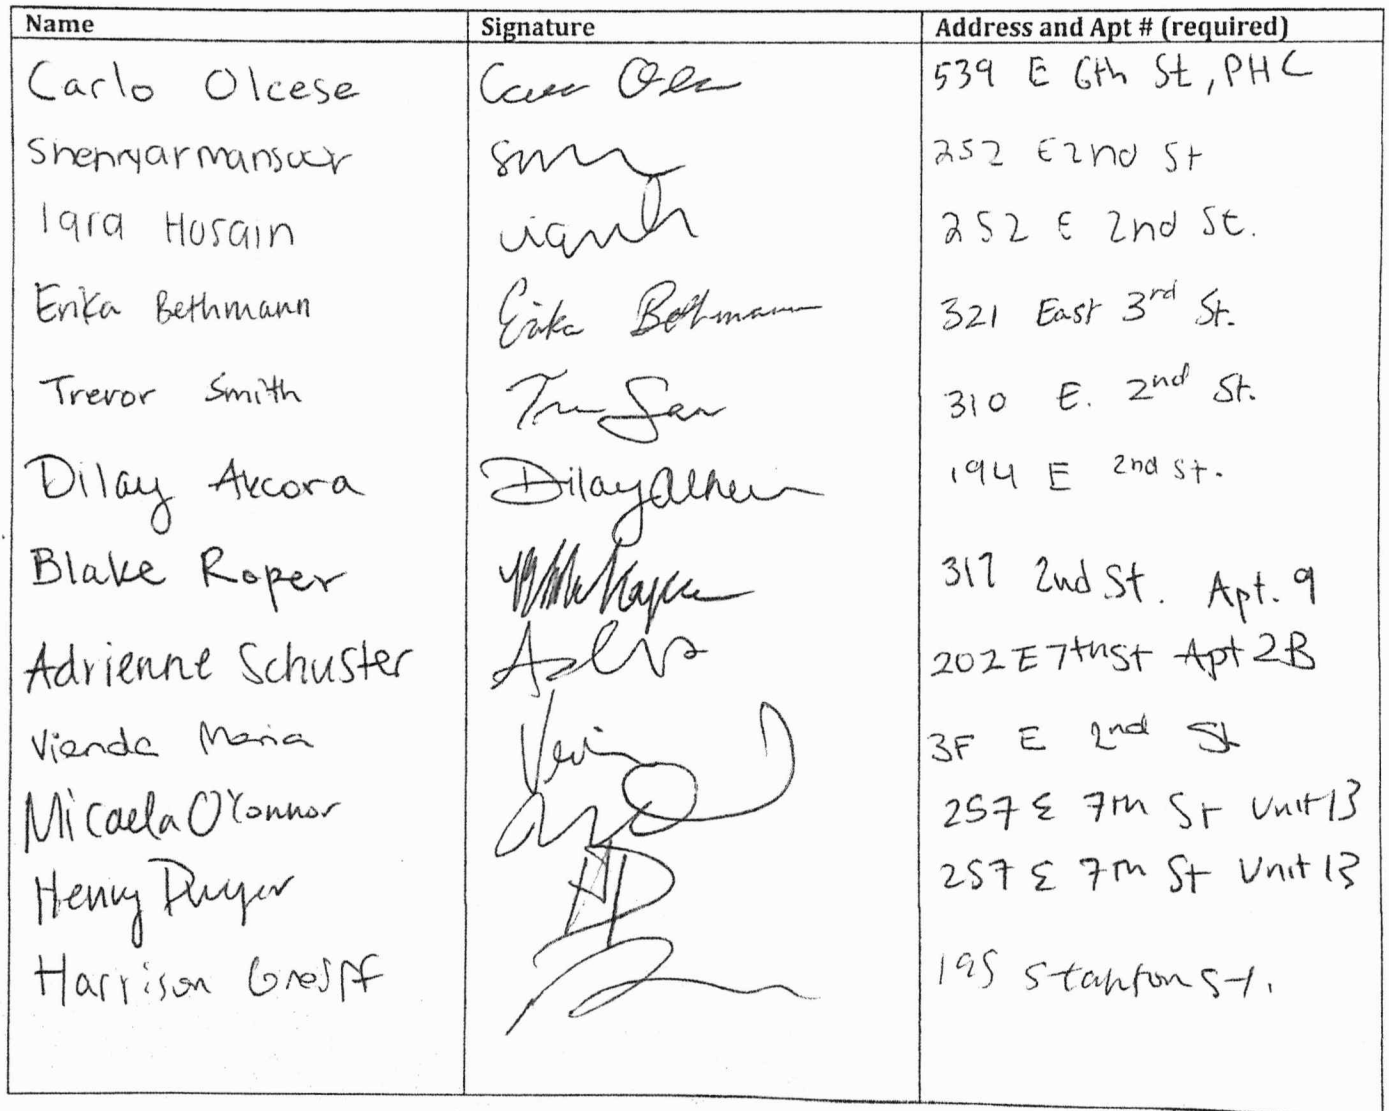 Name Signature Address and Apt # (required)
Carlo Olcese 539 E 6th St, PHC
252 E 2nd St
Iqra Husain 252 E 2nd St.
Erika Bethmann Erika Bethmann 321 East 3rd St.
Trevor Smith 310 E. 2nd St.
Dilay Akcora Dilay 194 E 2nd St.
Blake Roper 317 2nd St. Apt. 9
Adrienne Schuster 202 E 7th St Apt 2B
Maria 3F E 2nd St
Micaela O'Connor 257 E 7th St Unit 13
Henry Dwyer 257 E 7th St Unit 13
Harrison 195 Stanton St.